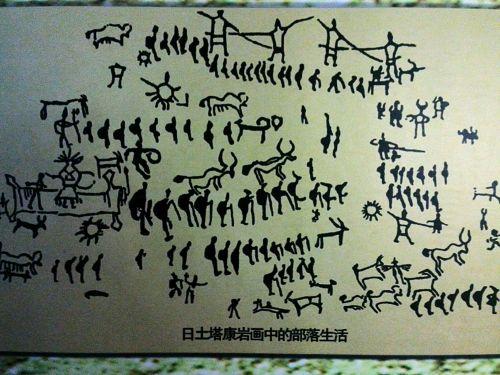 日土塔康岩画中的部落生活